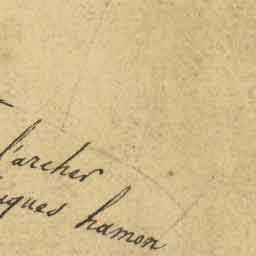 l'archer
ques hamon